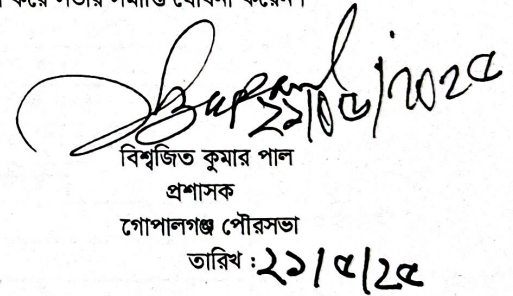 করে সভার সমাপ্তি ঘোষনা করেন।
২১/০৫/২০২৫
বিশ্বজিত কুমার পাল
প্রশাসক
গোপালগঞ্জ পৌরসভা
তারিখ : ২১/৫/২৫